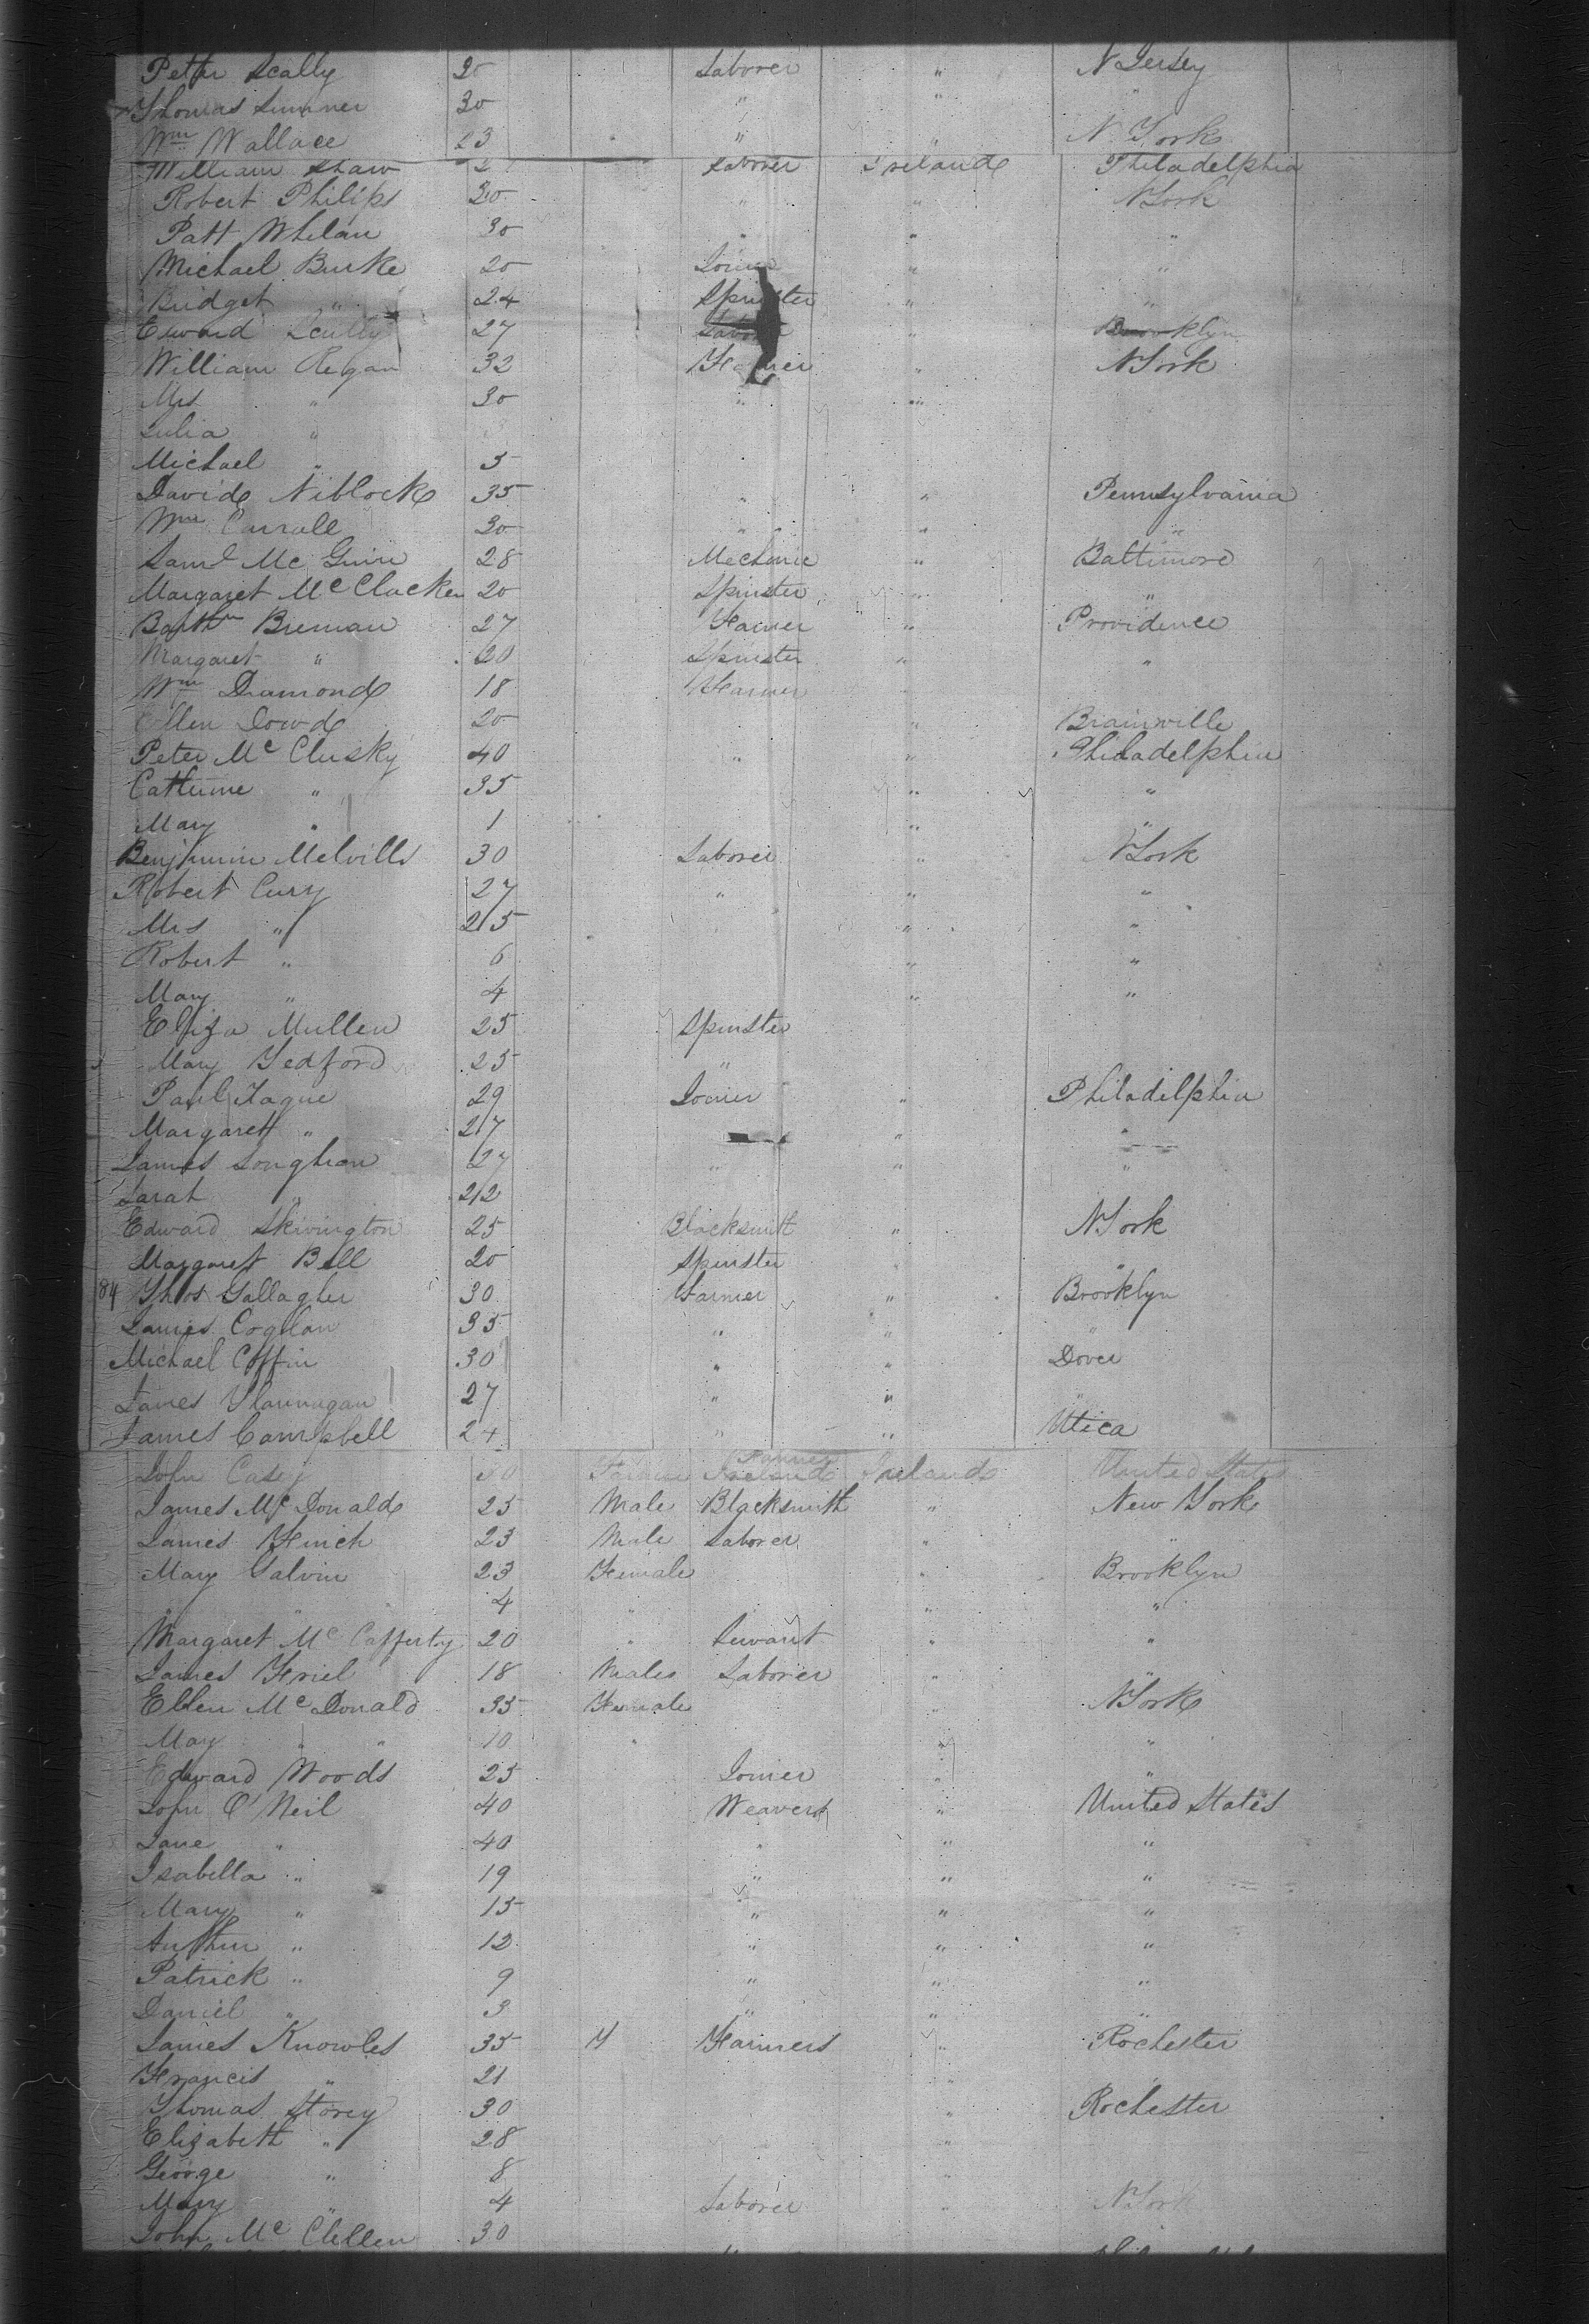 Peter Scally 20 Laborer " N Jersey
Thomas Sumner 30 " " "
Wm Wallace 23 " N York
William Shaw 2 Laborer Ireland Philadelphia
Robert Philips 30 " " N York
Patt Whelan 30 " " "
Michael Burke 20 Joiner " "
Bridget " 24 Spinster " "
Edward Scully 27 Laborer " Brooklyn
William Regan 32 Farmer " N York
Mrs " 30 " "
Julia "
Michael " 5
David Niblock 35 " " Pennsylvania
Wm Carroll 30 " " "
Saml Mc Guire 28 Mechanic " Baltimore
Margaret Mc Clacken 20 Spinster " "
Barthw Brennan 27 Farmer " Providence
Margaret " 20 Spinster " "
Wm Diamond 18 Farmer
Ellen Dowd 20 " Brainville
Peter Mc Clusky 40 " " Philadelphia
Catherine " 35 " "
Mary " 1 " "
Benjamin Melvills 30 Laborer " N York
Robert Cury 27 " " "
Mrs " 25 " "
Robert " 6 " "
Mary " 4 " "
Eliza Mullen 25 Spinster
Mary Tedford 25 "
Paul Tague 29 Joiner " Philadelphia
Margarett " 27 " "
James Loughran 27 " " "
Sarah " 22
Edward Skivington 25 Blacksmith " N York
Margaret Bell 20 Spinster "
84 Thos Gallagher 30 Farmer " Brooklyn
James Coglan 35 " " "
Michael Coffin 30 " " Dover
James Flannagan 27 " " "
James Campbell 24 " " Utica
John Casey 30 Farmer Ireland Ireland United States
James Mc Donald 25 Male Blacksmith " New York
James Finch 23 Male Laborer " "
Mary Galvin 23 Female " Brooklyn
" " 4 " " "
Margaret Mc Cafferty 20 " Servant " "
James Friel 18 Male Laborer " "
Ellen Mc Donald 35 Female " N York
Mary " " 10 " " "
Edward Woods 25 Joiner " "
John O'Neil 40 Weavers " United States
Jane " 40 " " "
Isabella " 19 " " "
Mary " 15 " " "
Arthur " 12 " " "
Patrick " 9 " " "
Daniel " 3 " " "
James Knowles 35 M Farmers " Rochester
Francis " 21 " "
Thomas Storey 30 " Rochester
Elizabeth " 28 "
George " 8
Mary " 4 Laborer " N York
John Mc Clellen 30